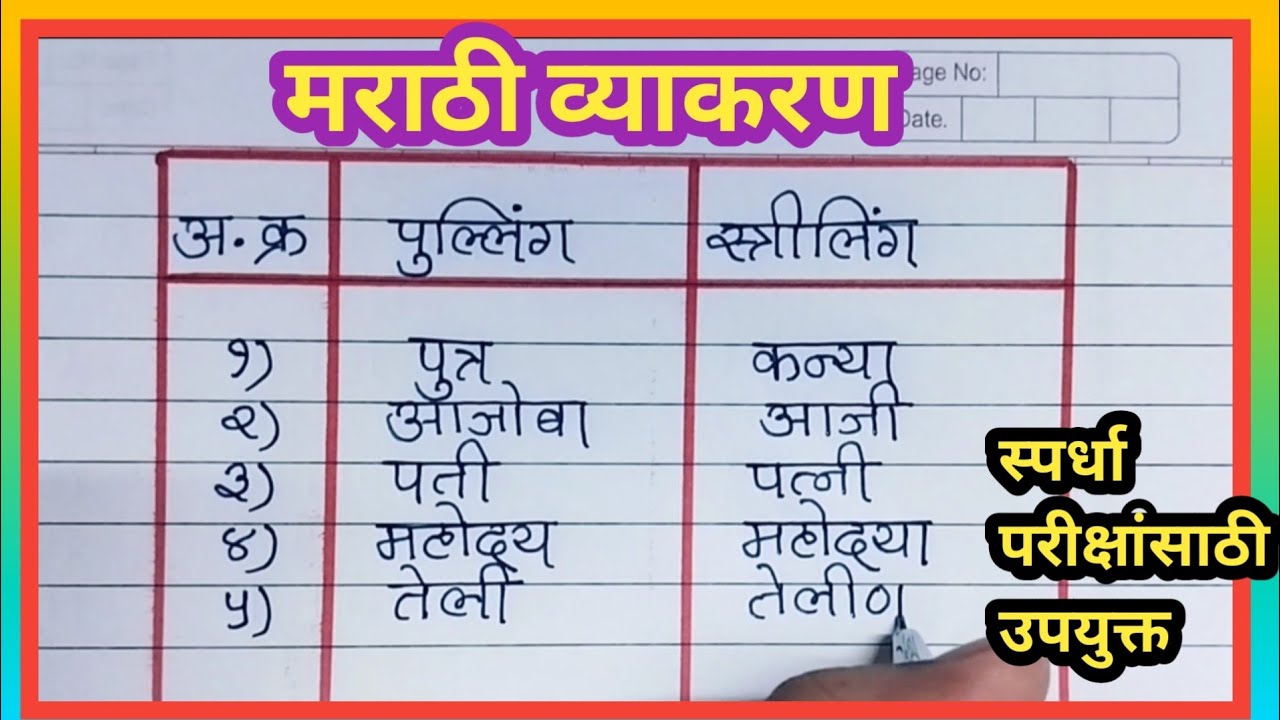 मराठी व्याकरण
age No:
Date.
अ. क्र पुल्लिंग स्त्रीलिंग
१) पुत्र कन्या
२) आजोबा आजी
३) पती पत्नी
४) महोदय महोदया
५) तेली तेलीण
स्पर्धा
परीक्षांसाठी
उपयुक्त